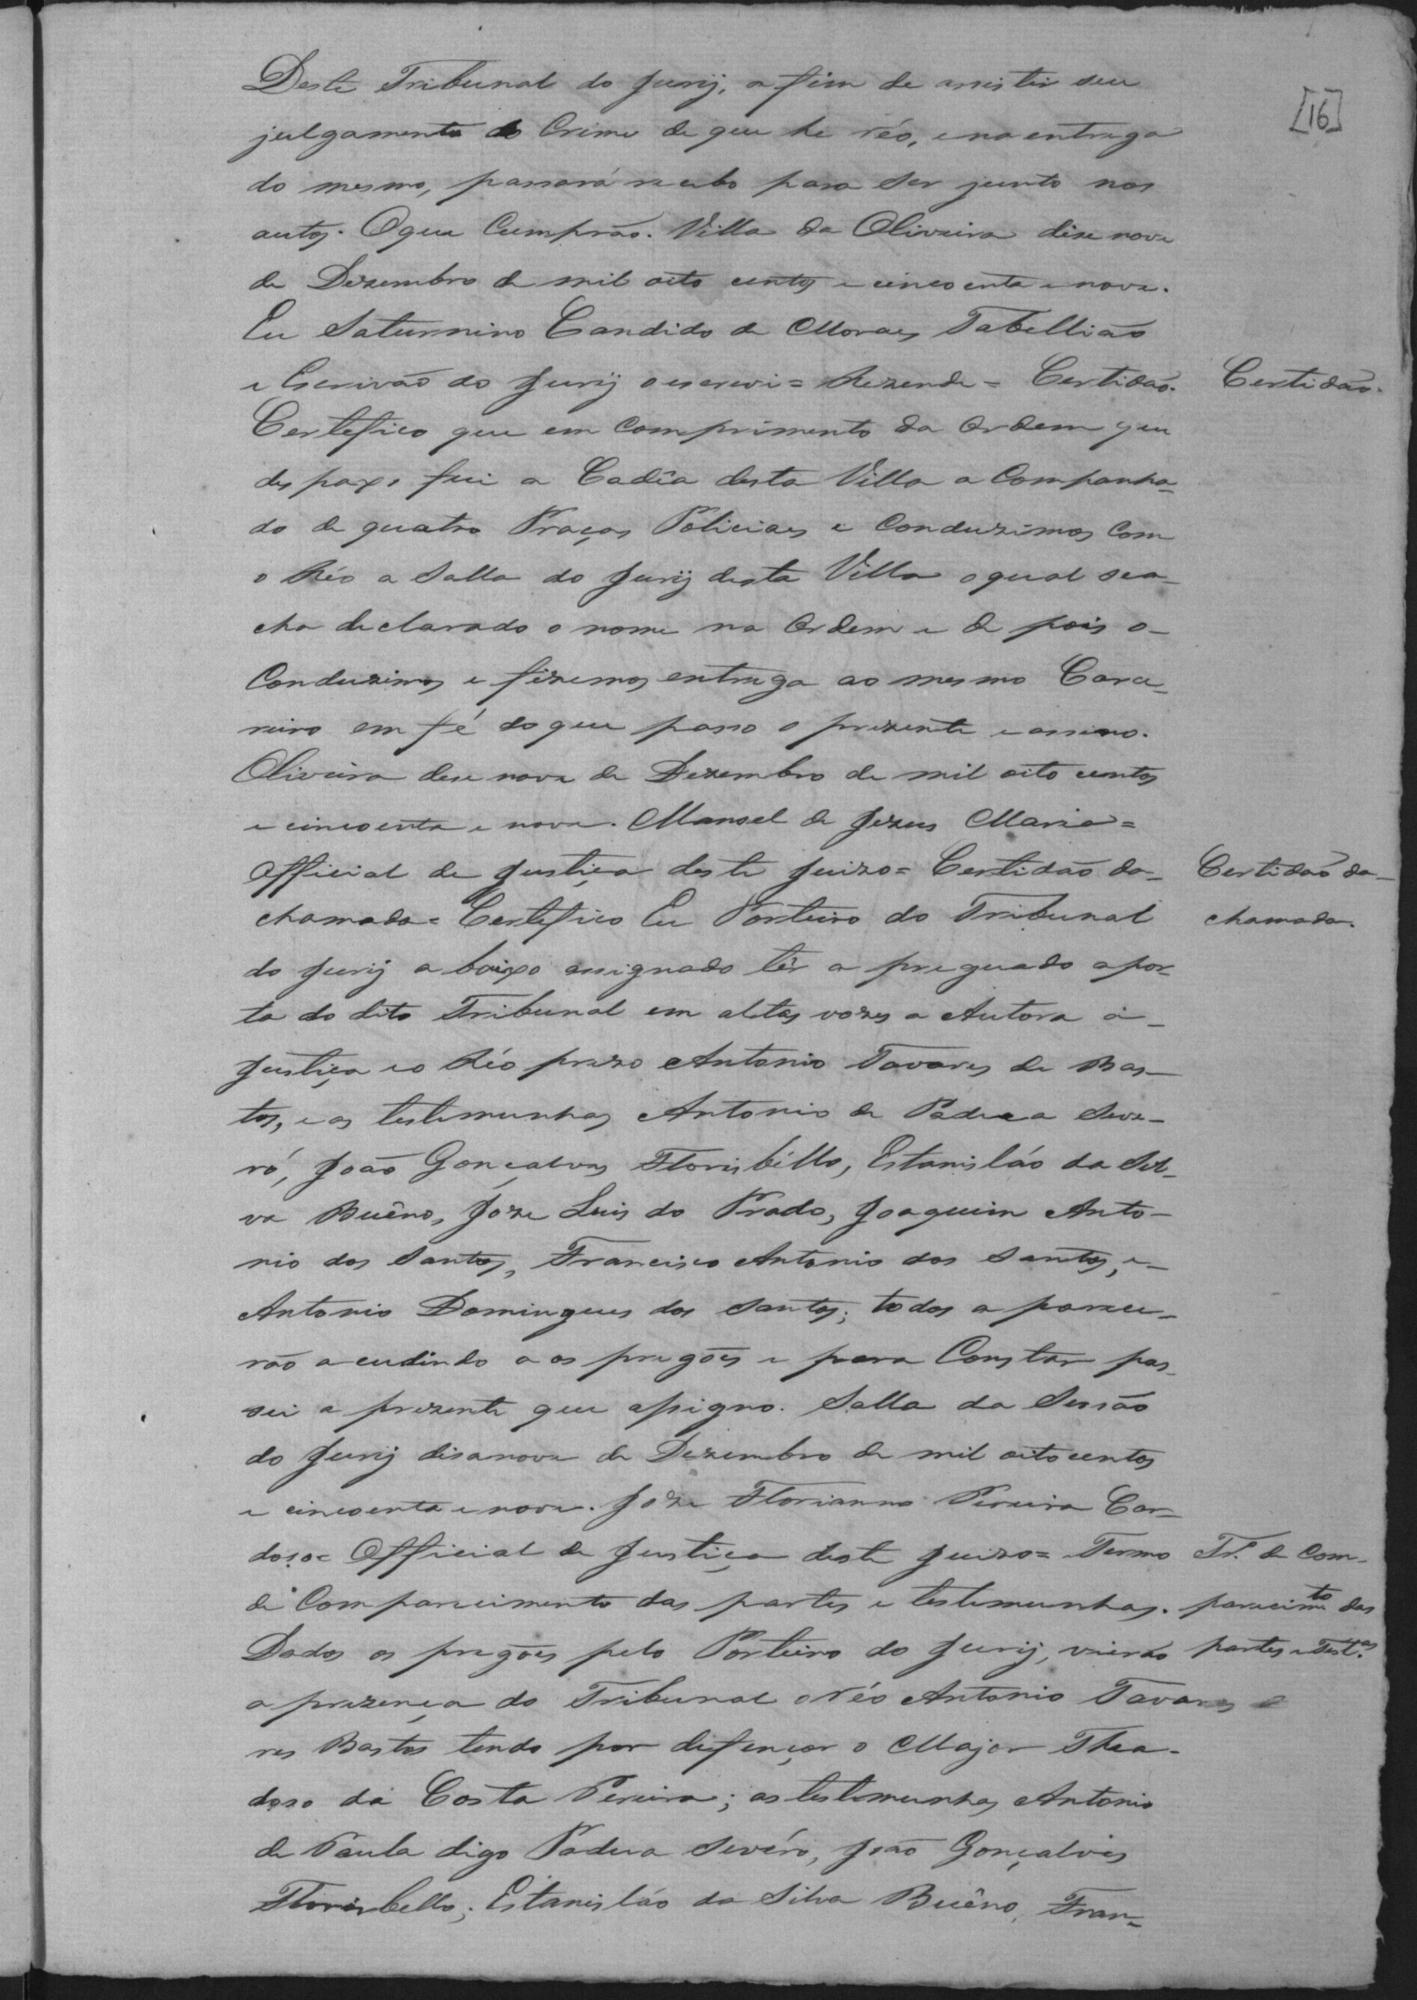 [16]
Deste Tribunal do Jurÿ, a fim de assistir seu
julgamento do Crime de que he réo, e na entrega
do mesmo, passará recibo para ser junto nos
autos. O que Cumprão. Villa da Oliveira dise nove
de Dezembro de mil oito centos e cincoenta e nove.
Eu Saturnino Candido de Moraes Tabellião
e Escrivão do Jurÿ o escrevi = Rezende = Certidão.
Certidão.
Certefico que em Comprimento da Ordem que
des paxo fui a Cadêa desta Villa a Companha-
do de quatro Praças Policiaes e Conduzimos Com
o Réo a Salla do Jurÿ desta Villa o qual se a-
cha declarado o nome na Ordem e de pois o-
Conduzimos e fizemos entrega ao mesmo Carce-
reiro em fé do que passo o prezente e assino.
Oliveira dese nove de Dezembro de mil oito centos
e cincoenta e nove. Manoel de Jezus Maria =
Official de Justiça deste Juizo = Certidão da-
Certidão da-
chamada = Certefico Eu Porteiro do Tribunal
chamada.
do Jurÿ a baixo assignado têr a preguado a por-
ta do dito Tribunal em altas vozes a Autora a-
Justiça e o Réo prezo Antonio Tavares de Bas-
tos, e as testemunhas Antonio de Padua Seve-
ró, João Gonçalves Florisbéllo, Estanisláo da Sil-
va Buêno, Joze Luis do Prado, Joaquim Anto-
nio dos Santos, Francisco Antonio dos Santos, e-
Antonio Domingues dos Santos; todos a parece-
rão a cudindo a os pregões e para Constar pas-
sei a prezente que assigno. Salla da Sessão
do Jurÿ disanove de Dezembro de mil oito centos
e cincoenta e nove. Joze Florianno Pereira Car-
dozo = Official de Justiça deste Juizo = Termo
Tr.º de Com-
de Comparecimento das partes e testemunhas.
parecimto das
Dados os pregões pelo Porteiro do Jurÿ, vierão
partes e Test.as
a prezença do Tribunal o Réo Antonio Tavares
res Bastos tendo por defençor o Major Thea-
dozo da Costa Pereira; as testemunhas Antonio
de Paula digo Padua Sevéro, João Gonçalves
Florisbello; Estanisláo da Silva Buêno, Fran-